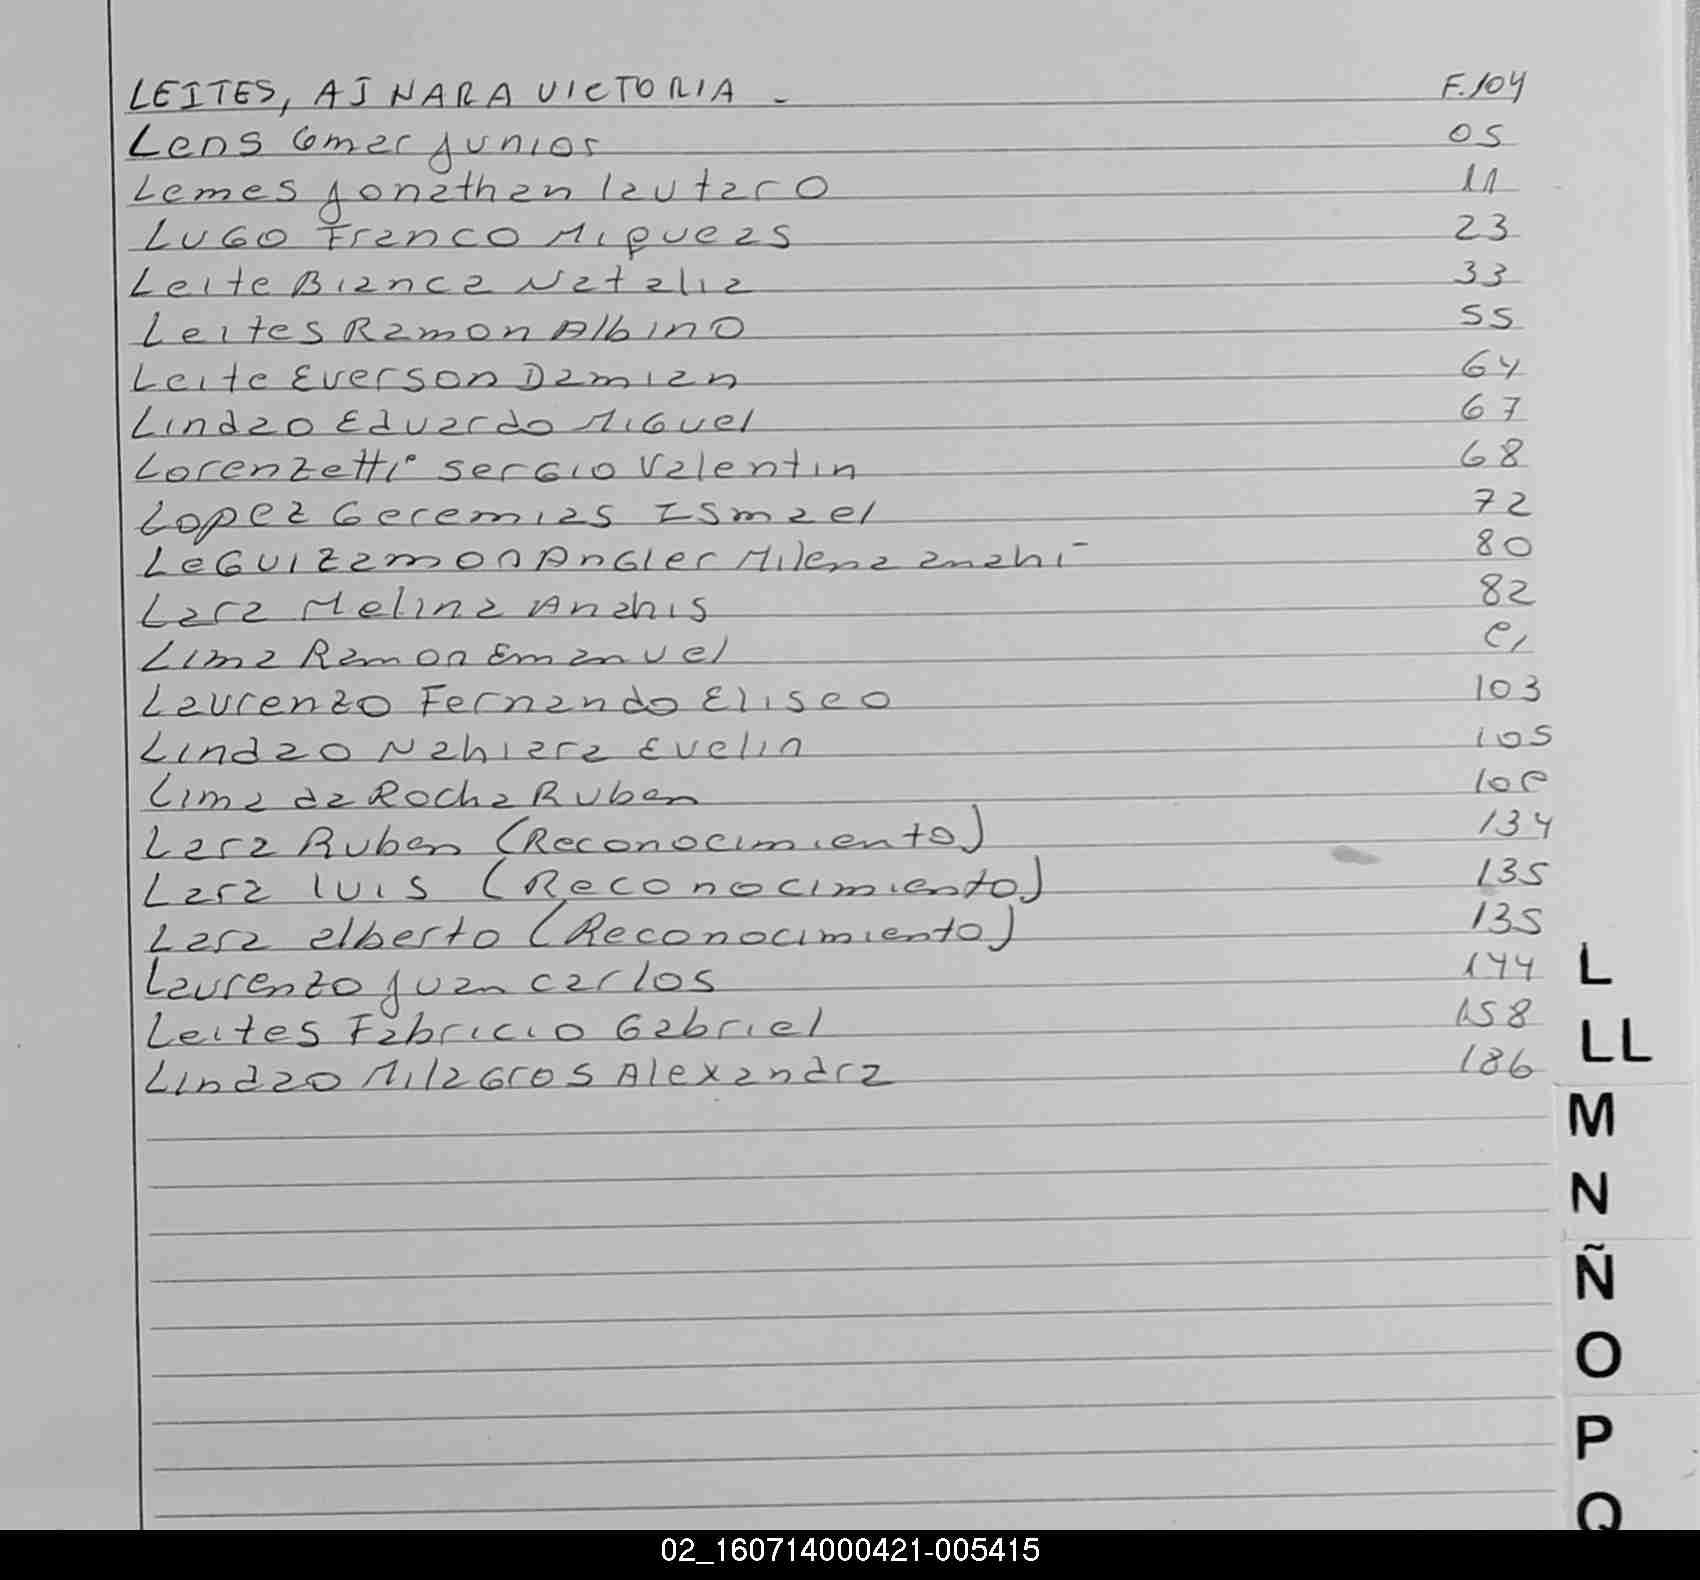 LEITES, AINARA VICTORIA - F.104
Lens Gmar Junior 05
Lemes Jonathan lautaro 11
LUGO Franco Miqueas 23
Leite Bianca Natalia 33
Leites Ramon Albino 55
Leite Everson Damian 64
Lindao Eduardo MiGuel 67
Lorenzetti Sergio Valentin 68
Lopez Geremias Ismael 72
LeGuizamon Angler Milena anahi 80
Lara Melina Anahis 82
Lima Ramon Emanuel
Laurenzo Fernando Eliseo 103
Lindao Nahiara Evelin 105
Lima da Rocha Ruben
Lara Ruben (Reconocimiento) 134
Lara luis (Reconocimiento) 135
Lara alberto (Reconocimiento) 135
Laurenzo Juan carlos 144
Leites Fabricio Gabriel 158
Lindao Milagros Alexandra 186
L
LL
M
N
Ñ
O
P
Q
02_160714000421-005415